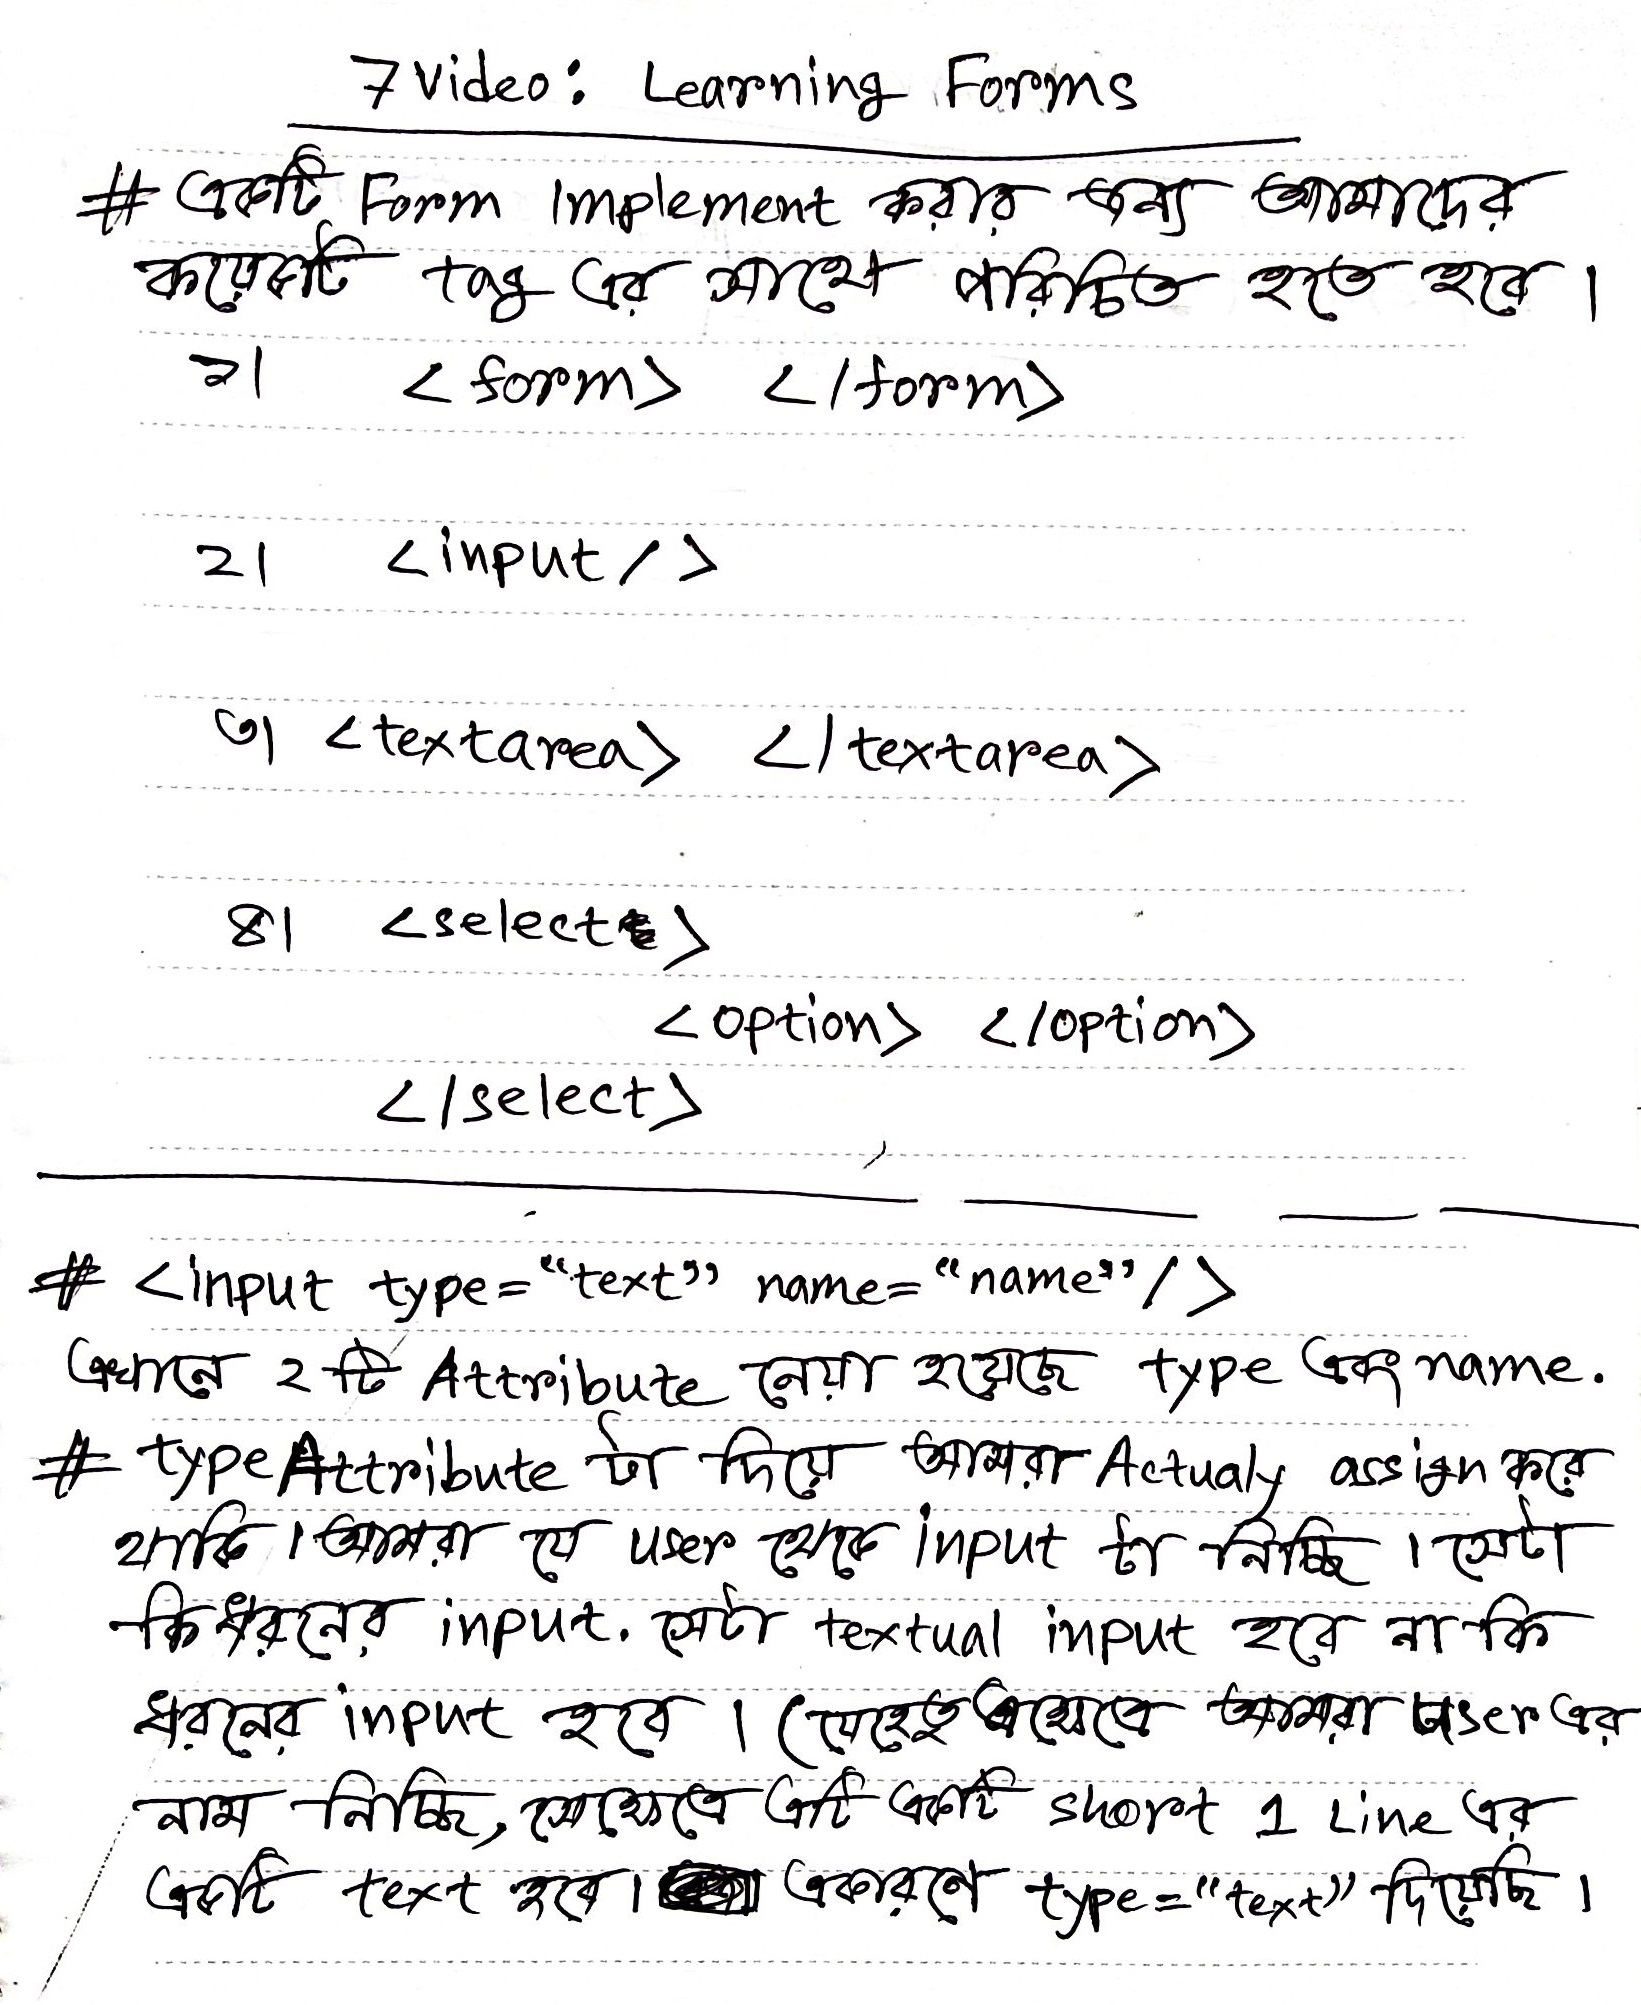 7 Video: Learning Forms
# একটি Form Implement করার জন্য আমাদের
কয়েকটি tag এর সাথে পরিচিত হতে হবে।
১। <form> </form>
২। <input/>
৩। <textarea> </textarea>
৪। <select>
<option> </option>
</select>
# <input type="text" name="name"/>
এখানে ২টি Attribute নেয়া হয়েছে type এবং name.
# type Attribute টা দিয়ে আমরা Actualy assign করে
থাকি। আমরা যে user থেকে input টা নিচ্ছি। সেটা
কি ধরনের input. সেটা textual input হবে না কি
ধরনের input হবে। (যেহেতু এক্ষেত্রে আমরা user এর
নাম নিচ্ছি, সেক্ষেত্রে এটি একটি short 1 Line এর
একটি text হবে। একারণে type="text" দিয়েছি।